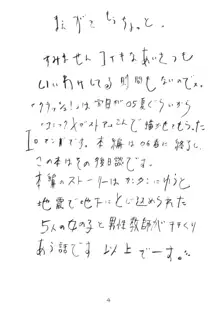 まえがきもちょっと。
すみません コイキなあいさつも
いいわけしてる時間もないのでス。
「クラッシュ!」は 前日が05夏ぐらいから
コミックメガストアさんで 描かせてもらった
エロマンガです。本編は06春に終了し、
この本はその後日談です。
本編のストーリーはカンタンにゆうと
地震で地下にとじ込められた
5人の女の子と男性教師が すすくり
あう話です 以上でーす。
4